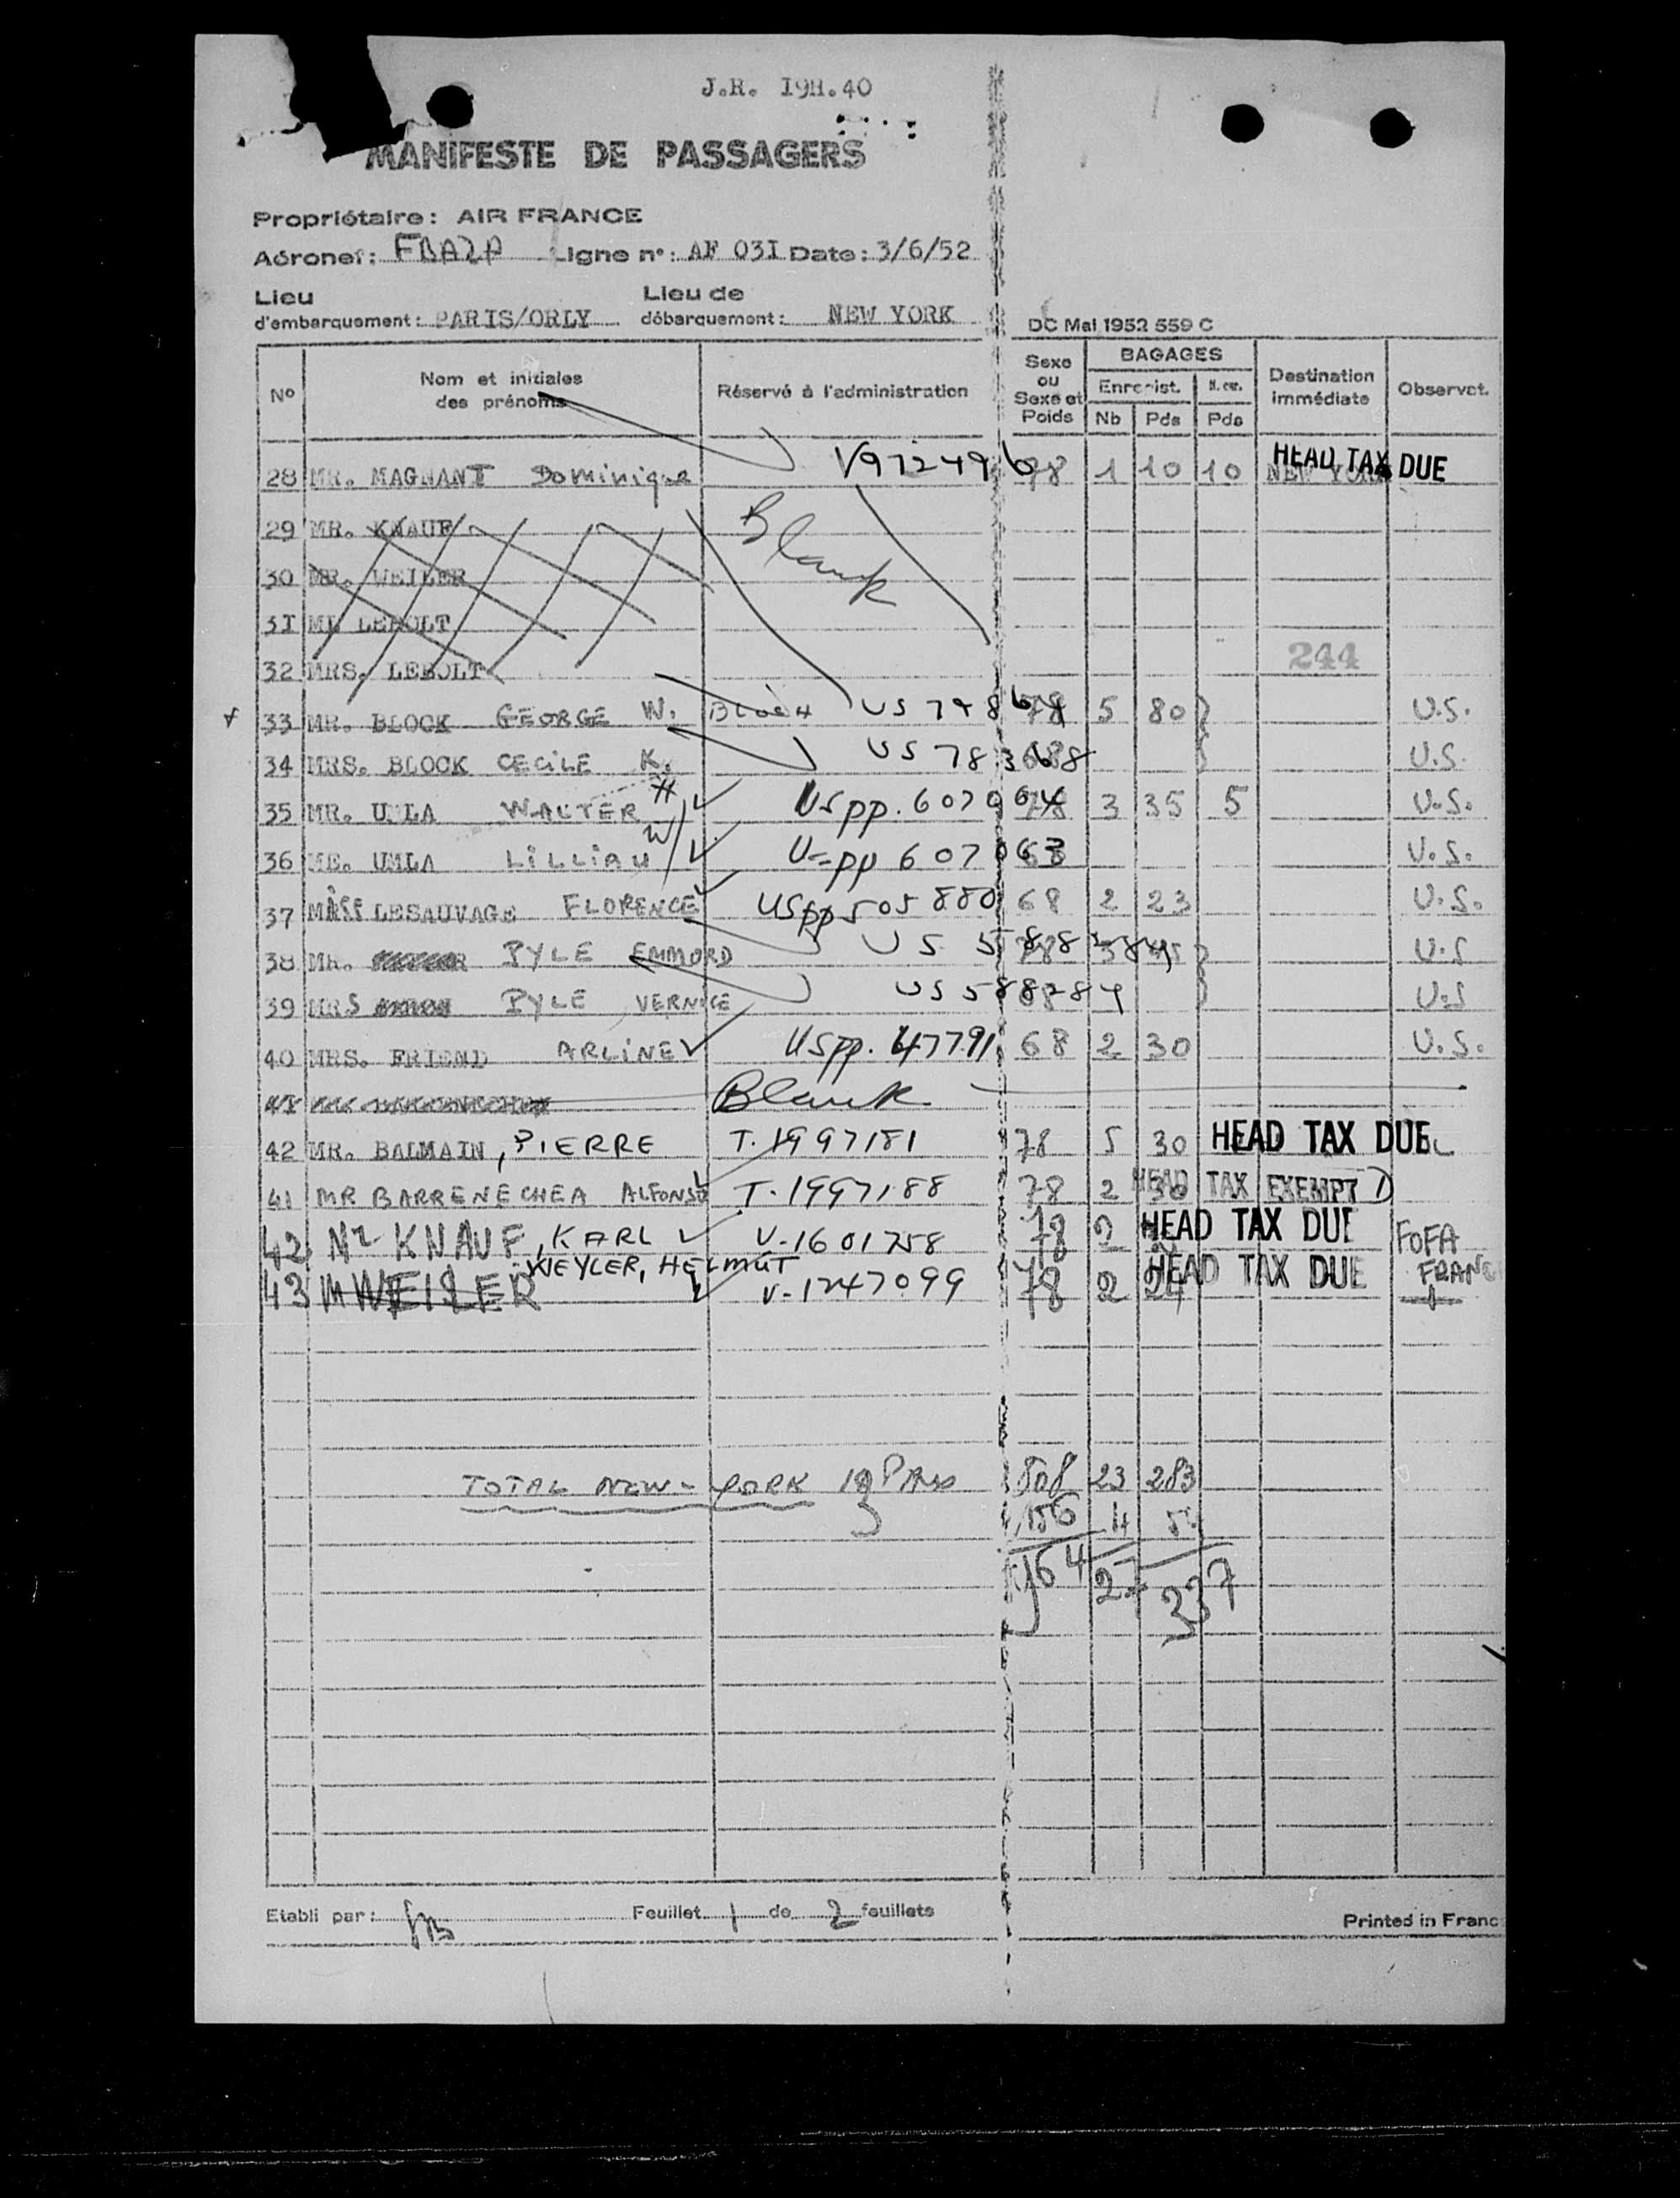 J.R. I9H.40
MANIFESTE DE PASSAGERS
Propriétaire: AIR FRANCE
Aéronef: FBAZP Ligne n°: AF 03I Date: 3/6/52
Lieu d'embarquement: PARIS/ORLY Lieu de débarquement: NEW YORK
DC Mai 1952 559 C
N° Nom et initiales des prénoms Réservé à l'administration Sexe ou Sexe et Poids BAGAGES Enregist. Nb Pds Pds Destination immédiate Observat.
28 MR. MAGNANT Dominique V972496 78 1 10 10 NEW YORK HEAD TAX DUE
29 MR. KNAUF Blank
30 MR. WEILER
3I LEBOLT
32 MRS. LEBOLT 244
33 MR. BLOCK GEORGE W. 78 5 80 U.S.
34 MRS. BLOCK CECILE K. US 68 U.S.
35 MR. UMLA WALTER H USpp. 78 3 35 5 U.S.
36 UMLA LILLIAN W pp 68 U.S.
37 LESAUVAGE FLORENCE USpp 505880 68 2 23 U.S.
38 MR. PYLE EMMORD US 78 U.S
39 MRS PYLE VERNICE US U.S
40 MRS. FRIEND ARLINE USpp. 47791 68 2 30 U.S.
Blank
42 MR. BALMAIN, PIERRE T.1997181 78 5 30 HEAD TAX DUE
41 MR BARRENECHEA ALFONSO T.1997188 78 2 30 HEAD TAX EXEMPT
42 Mr KNAUF, KARL V-1601758 78 2 HEAD TAX DUE FOFA
WEYLER, HELMUT
43 M WEILER V-1247099 78 2 24 HEAD TAX DUE FRANC
TOTAL NEW-YORK PAX 808 23 283
156 4
964 27 337
Etabli par: Feuillet 1 de 2 feuillets
Printed in Franc